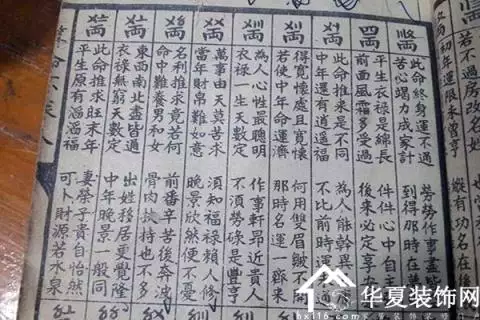 初年運限未曾亨
若不過房改名姓
縱有功名在
此命終身運不通
勞勞作事盡
苦心竭力成家計
到得那時在
四兩
平生衣祿是綿長
件件心中自
前面風霜多受過
後來必定享
此命推來是不同
為人能幹異
中年還有逍遙福
不比前時運
得寬懷處且寬懷
何用雙眉皺不開
若使中年命運濟
那時名運一齊來
為人心性最聰明
作事軒昂近貴人
衣祿一生天數定
不須勞碌是豐亨
萬事由天莫苦求
須知福祿賴人修
當年財帛難如意
晚景欣然便不憂
名利推求竟若何
前番辛苦後奔波
命中難養男和女
骨肉扶持也不多
東西南北盡皆通
出姓移居更覺隆
衣祿無窮天數定
中年晚景一般同
此命推求旺末年
妻榮子貴自怡然
平生原有滔滔福
可卜財源若水泉
华夏装饰网